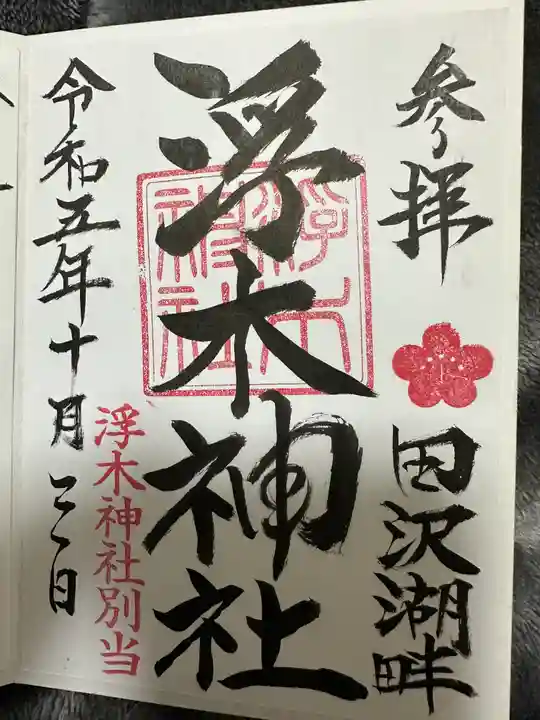 参拝
田沢湖畔
浮木神社
浮木神社
令和五年十月三日
浮木神社別当